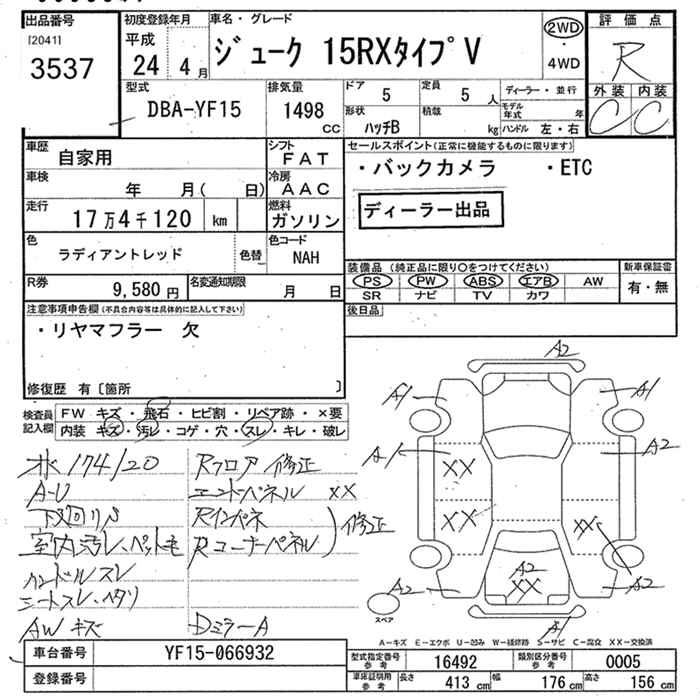 出品番号
[2041]
3537
初度登録年月
平成
24 4月
車名・グレード
ジューク 15RXタイプV
2WD
・
4WD
評価点
R
外装 内装
C C
型式
DBA-YF15
排気量
1498
CC
ドア
5
定員
5人
形状
ハッチB
積載
kg
ディーラー・並行
モデル年式 年
ハンドル 左・右
車歴
自家用
シフト
FAT
車検
年 月( 日)
冷房
AAC
走行
17万4千120 km
燃料
ガソリン
色
ラディアントレッド
色替
色コード
NAH
R券
9,580円
名変通知期限
月 日
セールスポイント(正常に機能するものに限ります)
・バックカメラ ・ETC
ディーラー出品
装備品(純正品に限り○をつけてください)
PS PW ABS エアB AW
SR ナビ TV カワ
新車保証書
有・無
後日品
注意事項申告欄(不具合内容等は具体的に記入して下さい)
・リヤマフラー 欠
修復歴 有〔箇所 〕
検査員記入欄
FW キズ・飛石・ヒビ割・リペア跡・×要
内装 キズ・汚レ・コゲ・穴・スレ・キレ・破レ
174120
A-U
下廻りS
室内汚レ、ペット毛
ハンドルスレ
シートスレ、ヘタリ
AW キズ
Rフロア 修正
エンドパネル XX
Rインパネ
Rコーナーパネル
修正
DミラーA
A2
A1
A1
A1
A2
XX
XX
XX
A2
XX
A2
A2
A1
スペア
A-キズ E-エクボ U-凹み W-補修跡 S-サビ C-腐食 XX-交換済
車台番号
YF15-066932
登録番号
型式指定番号
参考
16492
類別区分番号
参考
0005
車庫証明用
参考
長さ 413cm
幅 176cm
高さ 156cm